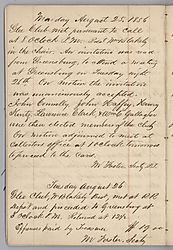 Monday August 25, 1856
The Club met pursuant to call
at 1 oclock P.M. Pres' W Blakely
in the chair. An invitation was read
from Greensburg, to attend a meeting
at Greensburg on Tuesday night
26th Cor motion the invitation
was unanimously accepted.
John Connelly, John Haffey, Henry
Hurly, Lawrence Clark, McC Gallagher
was then elected members of the Club
On motion adjourned to meet at
Collectors office at 1 oclock tomorrow
to proceed to the cars.
M. Foster, Secty &c.
Tuesday August 26
Glee Club, W Blakely Pres', met at RR
depot and proceeded to Greensburg at
2 oclock P.M. Returned at 12½.
Expenses paid by Treasurer $ 12 00
M. Foster, Secty